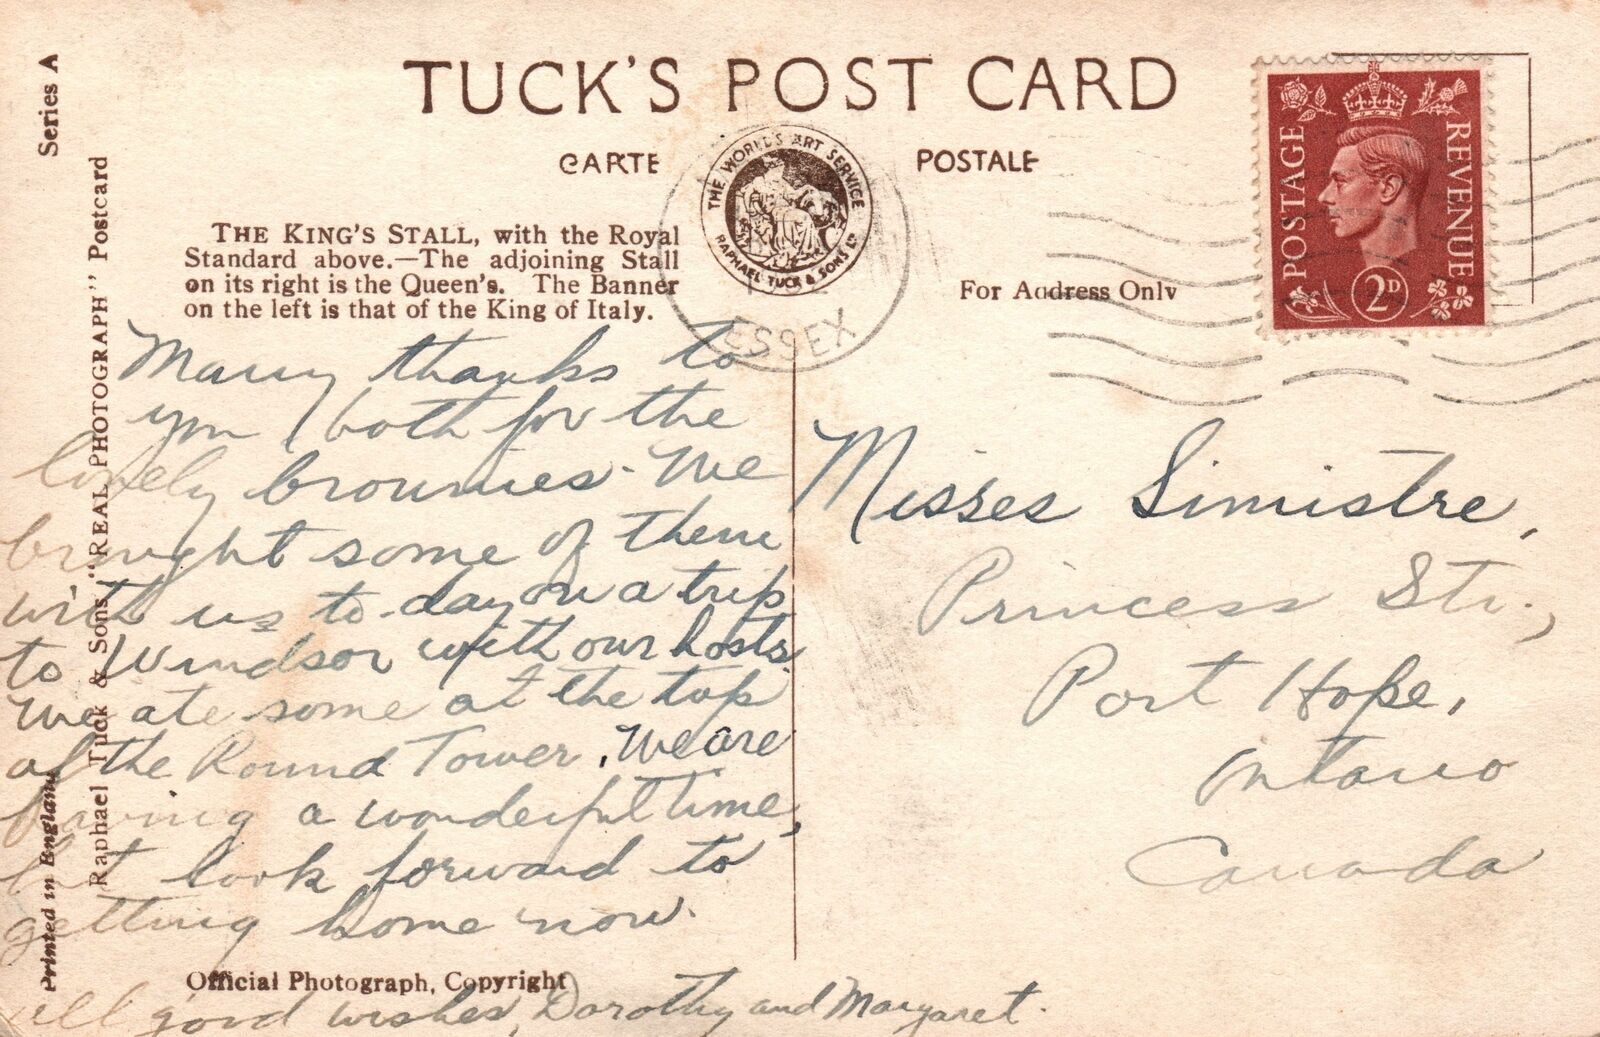 TUCK'S POST CARD
CARTE POSTALE
THE WORLD'S ART SERVICE
RAPHAEL TUCK & SONS LTD
ESSEX
POSTAGE
REVENUE
2D
THE KING'S STALL, with the Royal
Standard above.—The adjoining Stall
on its right is the Queen's. The Banner
on the left is that of the King of Italy.
For Address Only
Many thanks to
you both for the
lovely brownies. We
brought some of them
with us to-day on a trip
to Windsor with our hosts.
We ate some at the top
of the Round Tower. We are
having a wonderful time,
but look forward to
getting home now.
All good wishes, Dorothy and Margaret.
Misses Simistre,
Princess Str.,
Port Hope,
Ontario
Canada
Official Photograph, Copyright
Series A
Raphael Tuck & Sons' "REAL PHOTOGRAPH" Postcard
Printed in England